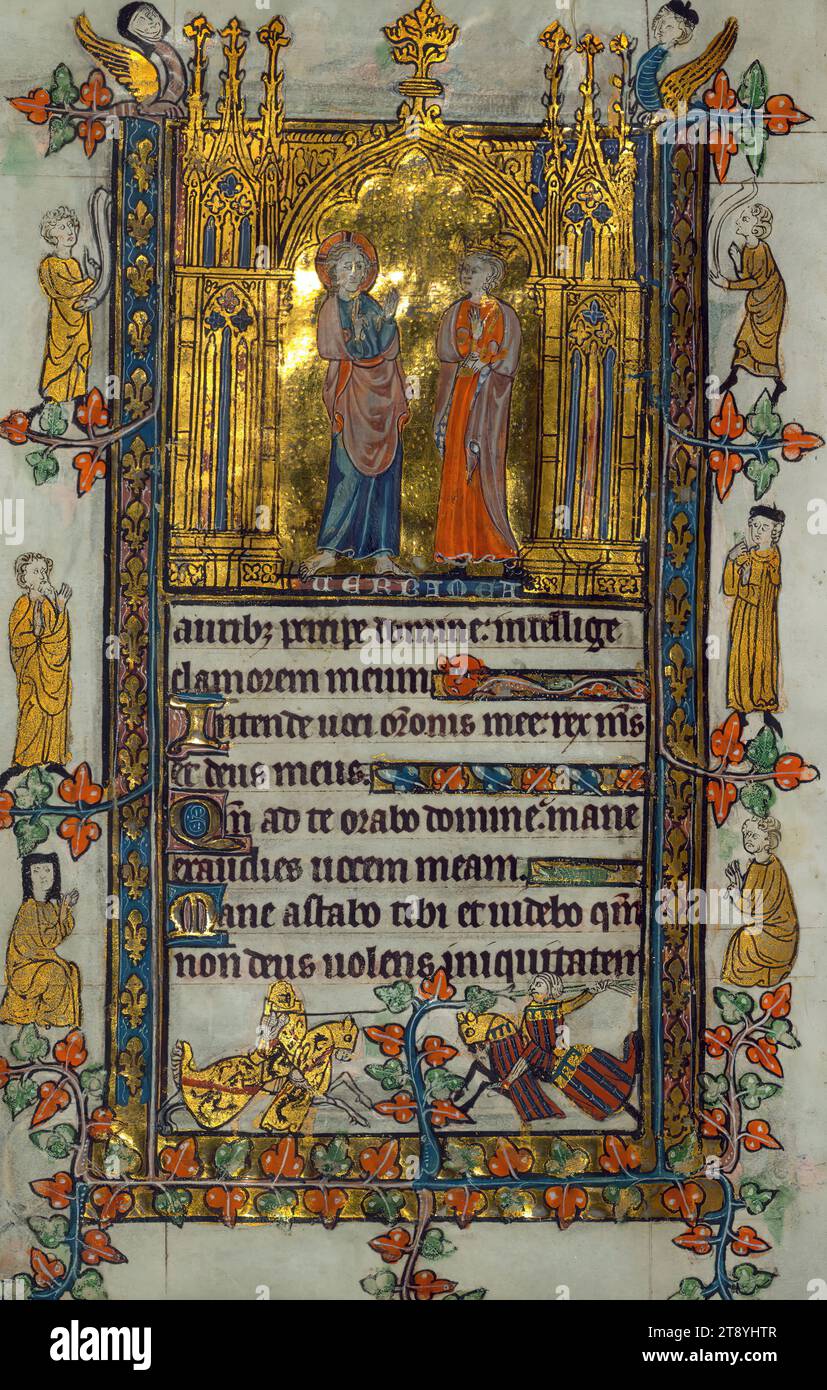 UERBA MEA
auribꝫ percipe domine: intellige
clamorem meum
Intende uoci or̄onis mee: rex m̄s
et deus meus.
Qm̄ ad te orabo domine: mane
exaudies uocem meam.
Mane astabo tibi et uidebo qm̄
non deus uolens iniquitatem
a
alamy
Image ID: 2T8YHTR
www.alamy.com